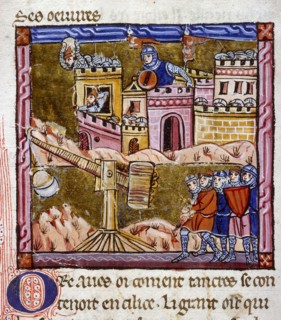 Ses oeuvres
ORe aves oi coment tancres se con
tenoit en cilice. Li grant ost qui